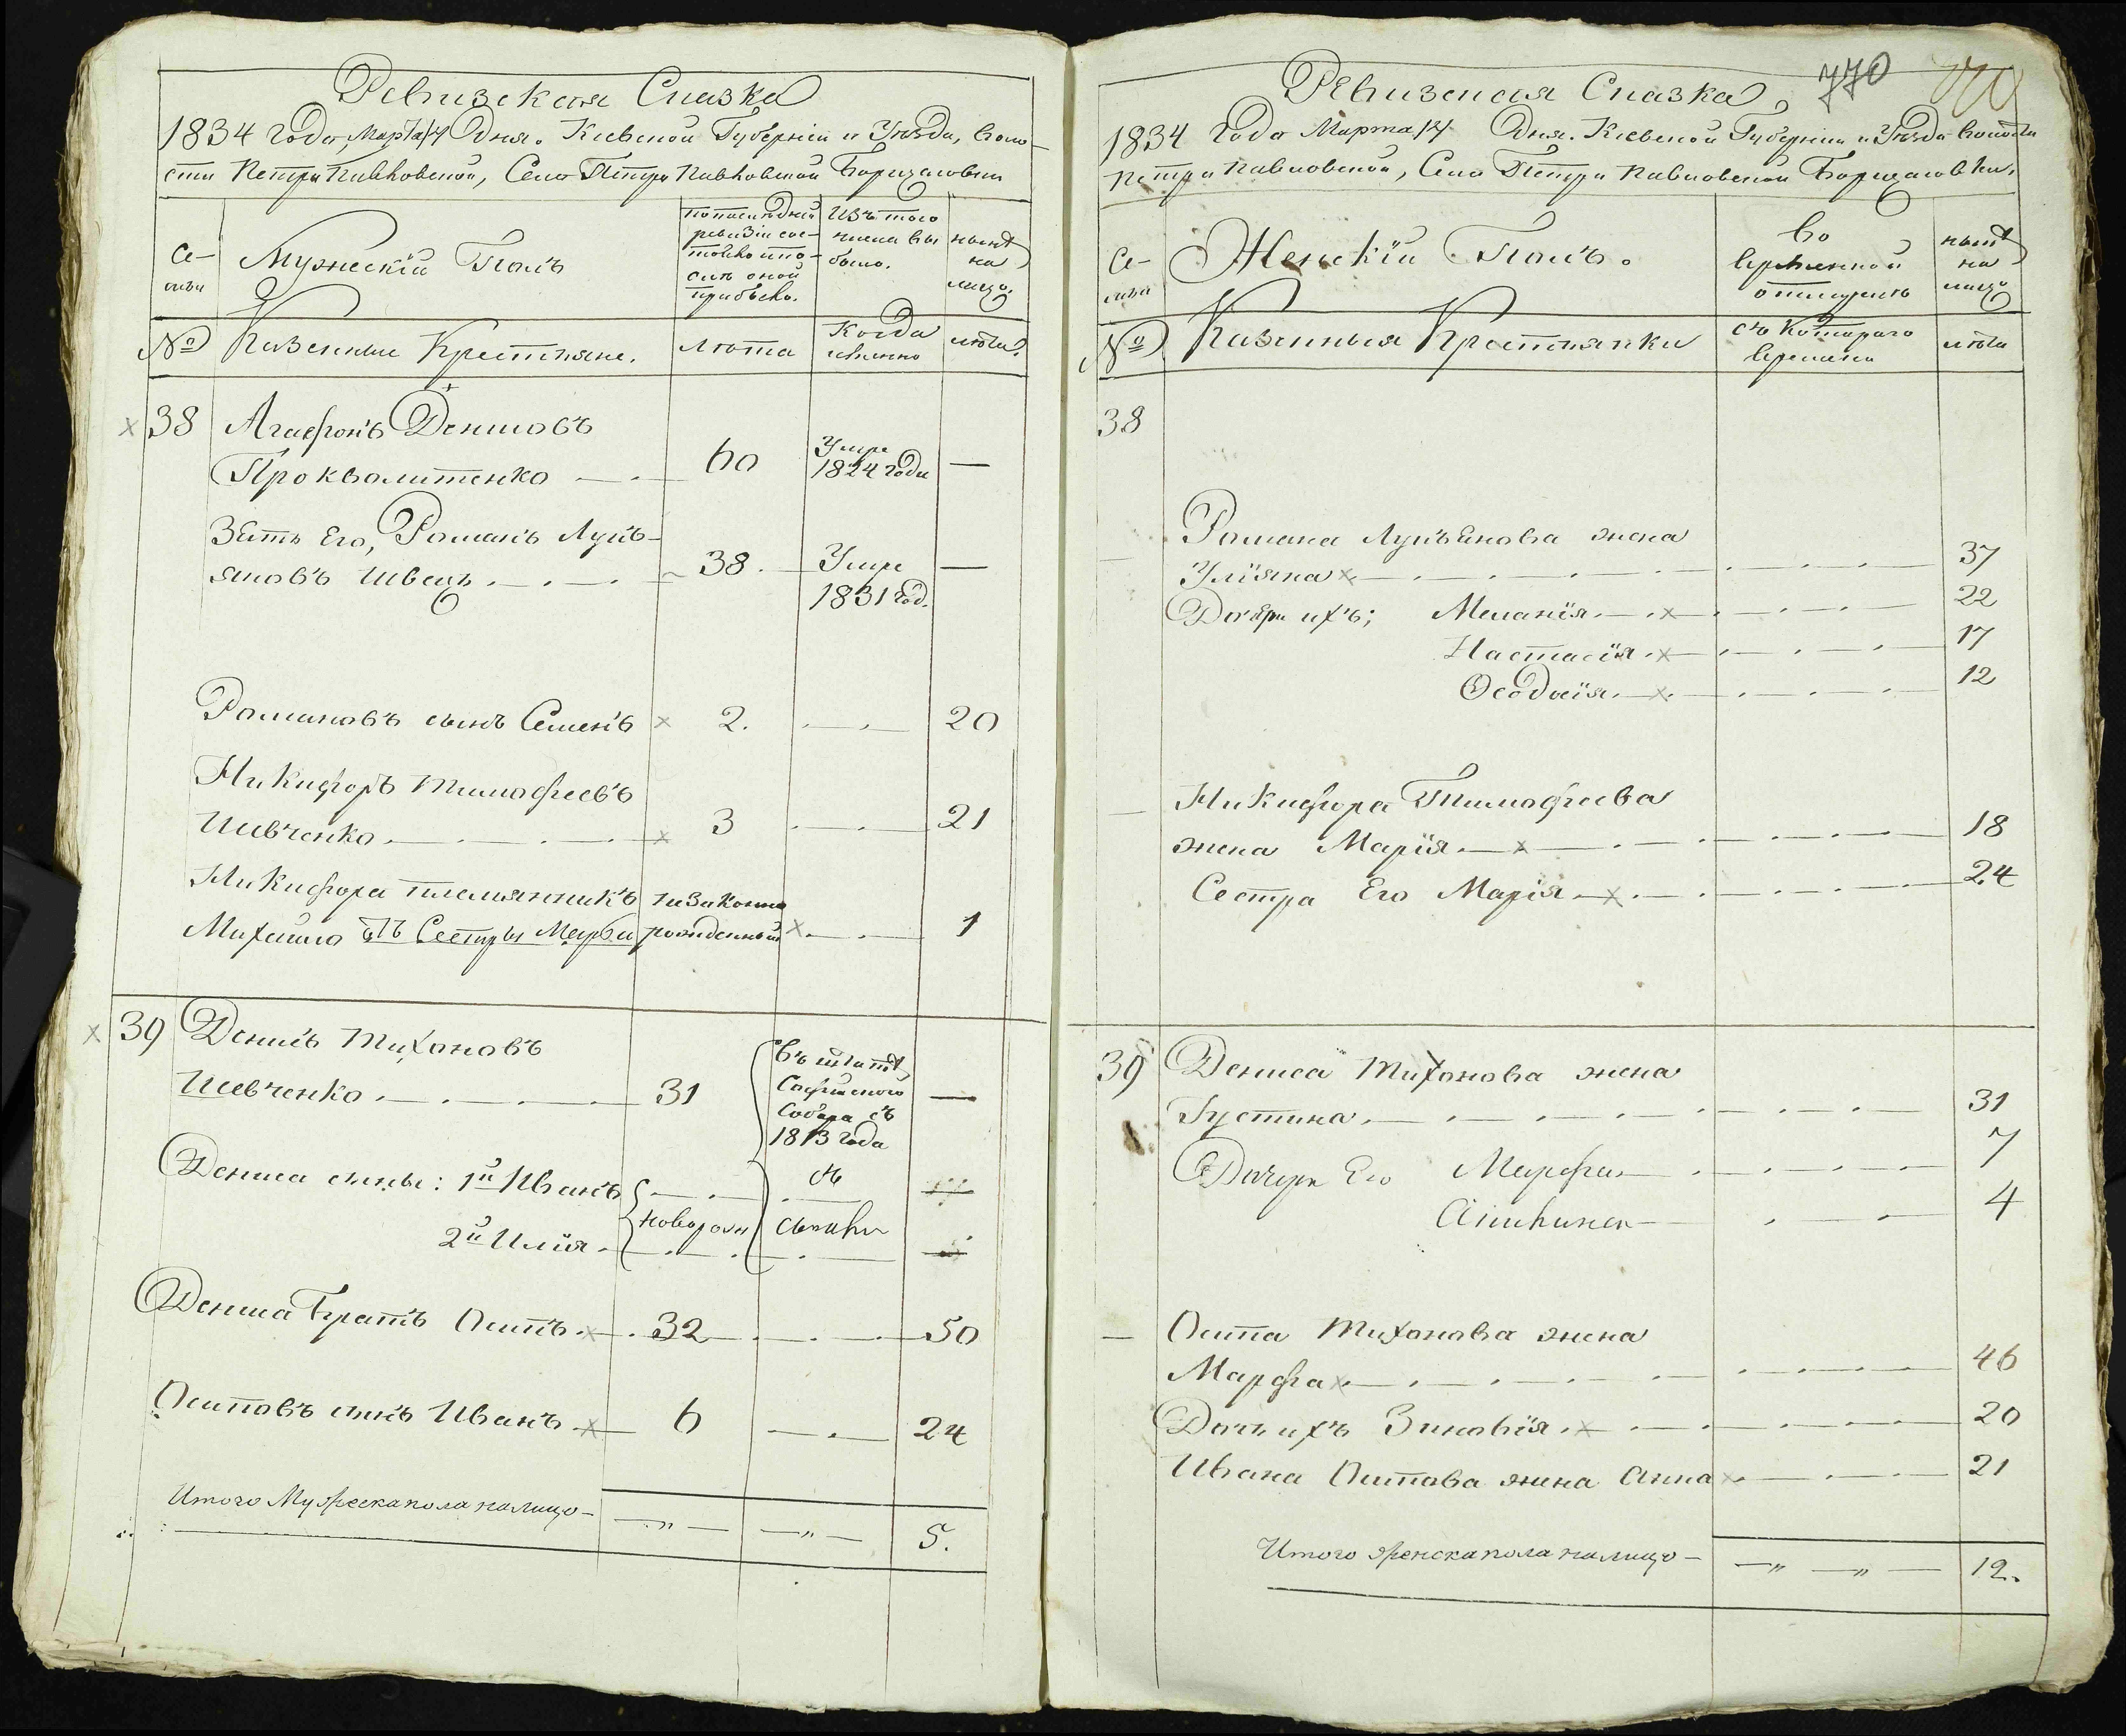 Ревизская Сказка
1834 года, Марта 14 Дня. Кіевской Губерніи и Уѣзда, воло-
сти Петропавловской, Села Петропавловской Борщаговки
Се-
мьи
Мужескій Полъ
По последней
ревизіи сос-
тояло и по-
слѣ оной
прибыло.
Изъ того
числа вы
было.
нынѣ
на
лицо.
№
Казенные Крестьяне.
Лѣта
Когда
именно
лѣта.
38 Агафонъ Денисовъ
Прокволитенко 60 Умре 1824 года —
Зять Его, Романъ Лукь-
яновъ Швецъ 38. Умре 1831 год. —
Романовъ сынъ Семенъ 2. 20
Никифоръ Тимофеевъ
Шевченко 3 21
Никифора племянникъ незаконно
Михайло отъ Сестры Марьи рожденный 1
39 Денисъ Тихоновъ
Шевченко 31 въ штатѣ
Софийского
Собора съ
1813 года —
Дениса сыны: 1й Иванъ
новорож
2й Илія
Дениса Братъ Осипъ 32 50
Осиповъ сынъ Иванъ 6 24
Итого Мужеска пола на лицо — 5.
770
Ревизская Сказка,
1834 Года Марта 14 Дня. Кіевской Губерніи и Уѣзда волости
Петропавловской, Села Петропавловской Борщаговки.
Се-
мьи
Женскій Полъ.
Во
временной
отлучкѣ
нынѣ
на
лицо
№
Казенныя Крестьянки
съ Котораго
времени
лѣта
38
Романа Лукьянова жена
Уліяна 37
Дочери ихъ; Меланія 22
Настасія 17
Ѳеодосія 12
Никифора Тимофеева
жена Марія 18
Сестра Его Марія 24
39 Дениса Тихонова жена
Густина 31
Дочери Его Марфа 7
4
Осипа Тихонова жена
Марфа 46
Дочь ихъ Зиновія 20
Ивана Осипова жена Анна 21
Итого женска пола на лицо — 12.